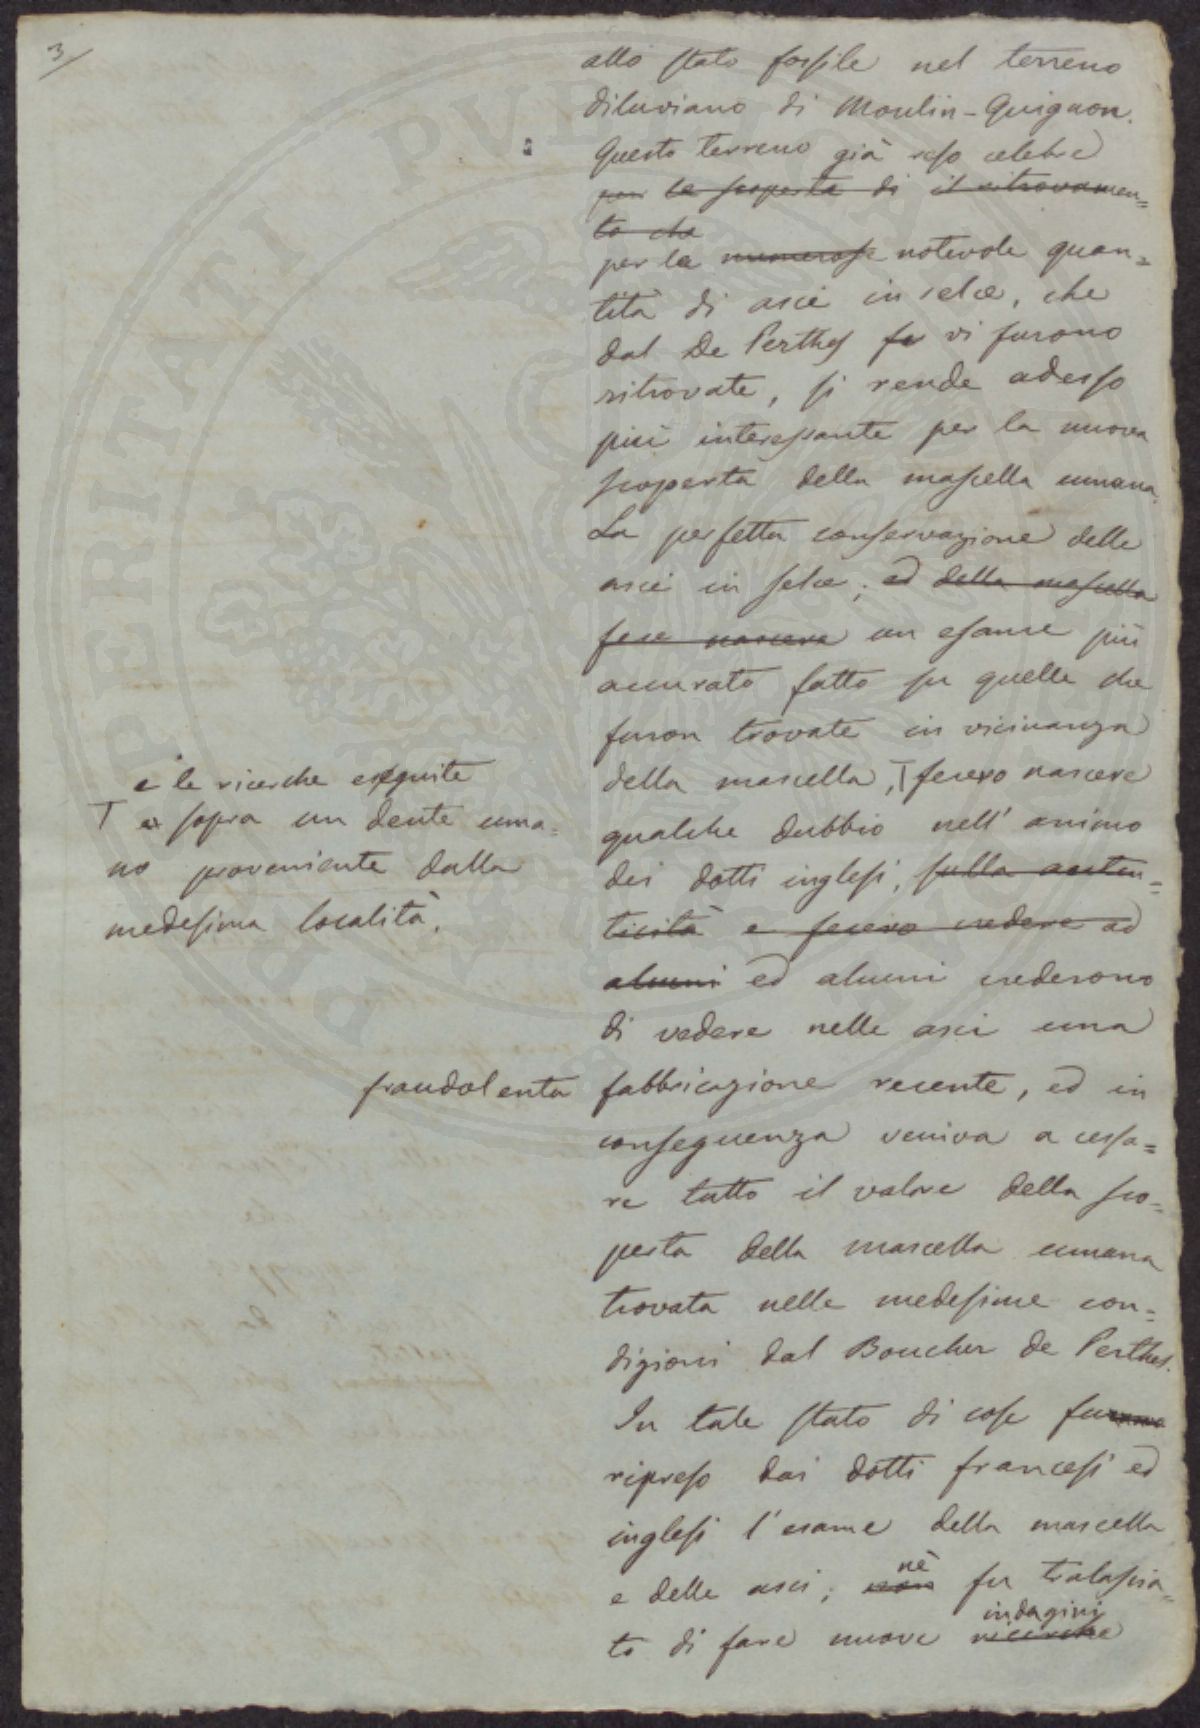 3/
allo stato fossile nel terreno
diluviano di Moulin-Quignon.
Questo terreno già reso celebre
per la scoperta di il ritrovamen=
to che
per la numerose notevole quan=
tità di ascie in selce, che
dal De Perthes fu vi furono
ritrovate, si rende adesso
più interessante per la nuova
scoperta della mascella umana.
La perfetta conservazione delle
ascie in selce, ed della mascella
fece nascere un esame più
accurato fatto su quelle che
furon trovate in vicinanza
della mascella, T fecero nascere
qualche dubbio nell' animo
dei dotti inglesi, sulla auten=
ticità e fecero credere ad
alcuni ed alcuni crederono
di vedere nelle asci una
fabbricazione recente, ed in
conseguenza veniva a cessa=
re tutto il valore della sco=
perta della mascella umana
trovata nelle medesime con=
dizioni dal Boucher de Perthes.
In tale stato di cose furono
ripreso dai dotti francesi ed
inglesi l'esame della mascella
e delle asci; non nè fu tralascia=
to di fare nuove ricerche indagini
e le ricerche eseguite
T sopra un dente uma=
no proveniente dalla
medesima località.
fraudolenta
PERITATI PVB